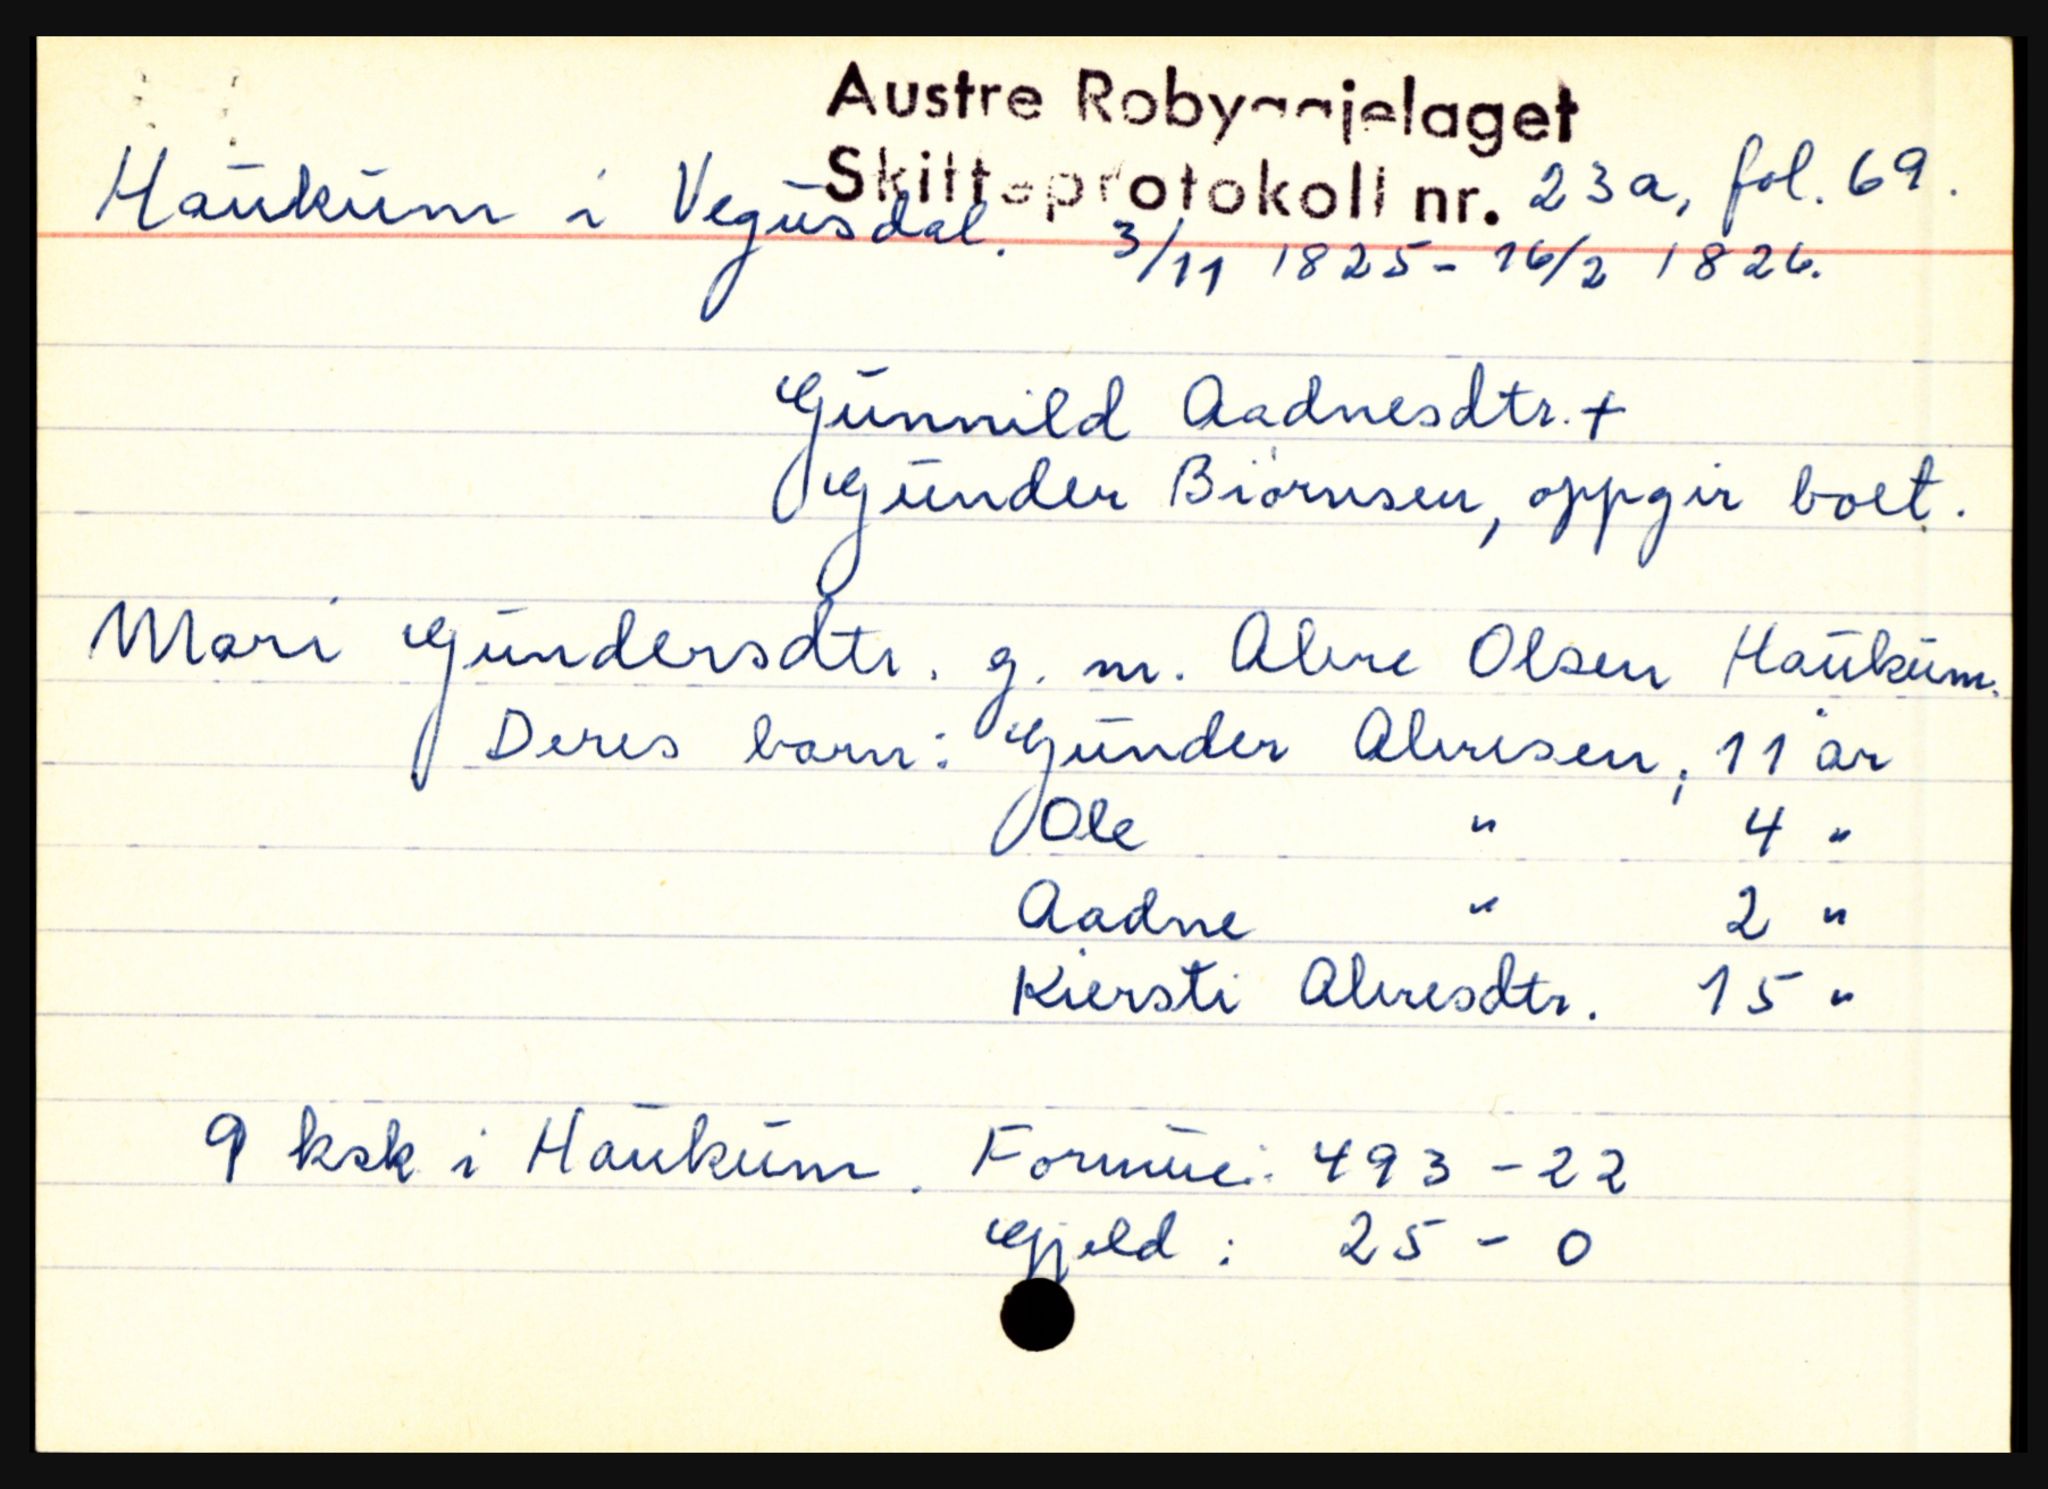 Austre Robyggjelaget
Skifteprotokoll nr. 23a, fol. 69.
Haukum i Vegusdal. 3/11 1825 - 16/2 1826.
Gunnild Aadnesdtr. +
Gunder Biørnsen, oppgir boet.
Mari Gundersdtr. g. m. Alvre Olsen Haukum.
Deres barn: Gunder Alvresen, 11 år
Ole " 4 "
Aadne " 2 "
Kiersti Alvresdtr. 15 "
9 ksk i Haukum. Formue: 493 - 22
Gjeld: 25 - 0